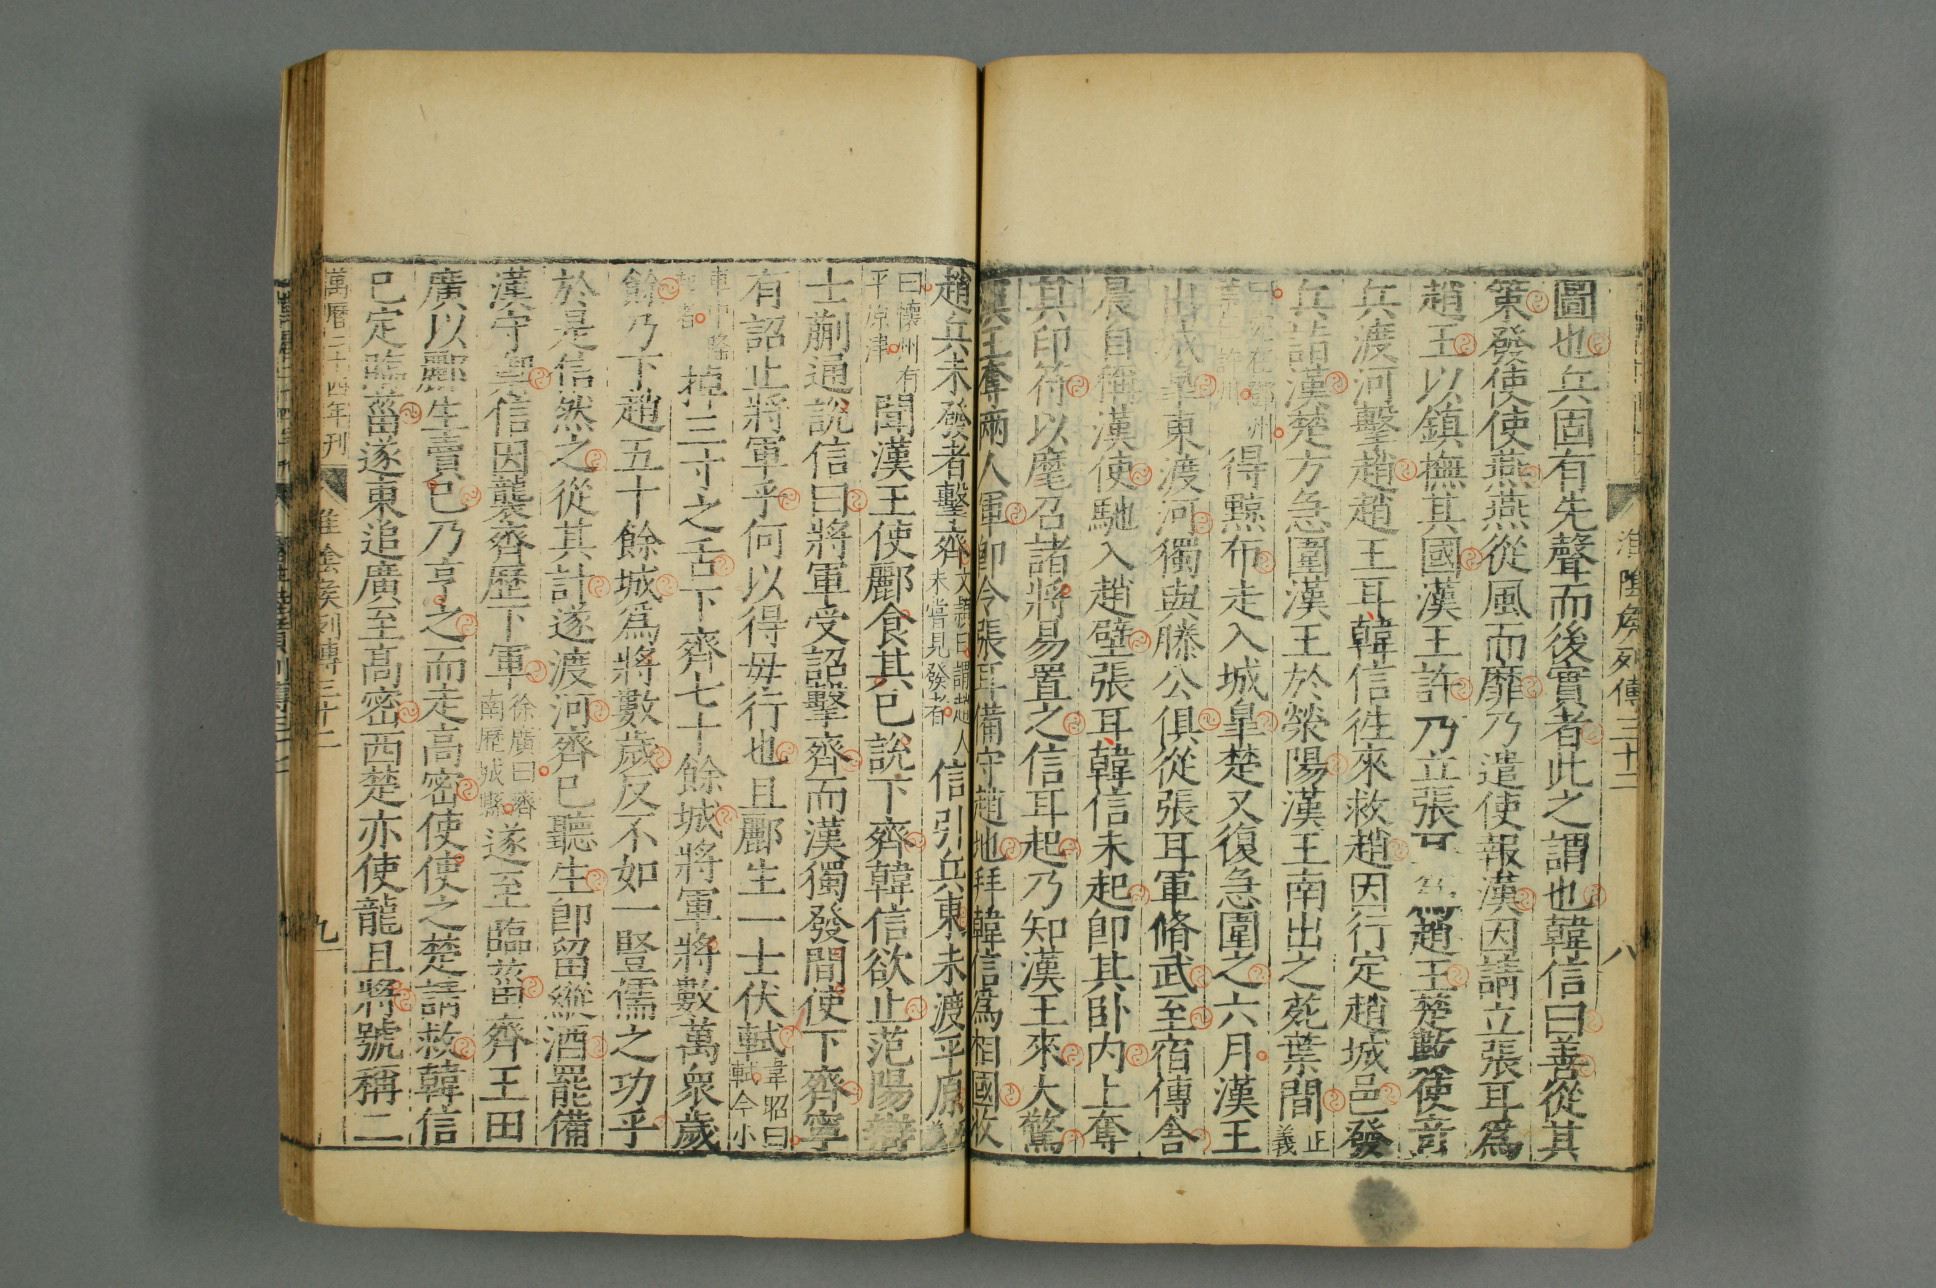 淮陰矦列傳三十二
八
圖也兵固有先聲而後實者此之謂也韓信曰善從其
策發使使燕燕從風而靡乃遣使報漢因請立張耳爲
趙王以鎮撫其國漢王許乃立張耳爲趙王楚數使竒
兵渡河擊趙趙王耳韓信徃來救趙因行定趙城邑發
兵詣漢楚方急圍漢王於滎陽漢王南出之菀葉間正義
得黥布走入城臯楚又復急圍之六月漢王
出成臯東渡河獨與滕公俱從張耳軍脩武至宿傳舍
晨自稱漢使馳入趙壁張耳韓信未起卽其卧内上奪
其印符以麾召諸將易置之信耳起乃知漢王來大驚
漢王奪兩人軍卽令張耳備守趙地拜韓信爲相國收
趙兵未發者擊齊文穎曰謂趙人未嘗見發者信引兵東未渡平原
曰懷州有平原津聞漢王使酈食其已說下齊韓信欲止范陽辯
士蒯通說信曰將軍受詔擊齊而漢獨發間使下齊寧
有詔止將軍乎何以得毋行也且酈生一士伏軾韋昭曰軾今小
車中隆掉三寸之舌下齊七十餘城將軍將數萬衆歲
餘乃下趙五十餘城爲將數歲反不如一豎儒之功乎
於是信然之從其計遂渡河齊已聽酈生卽留縱酒罷備
漢守禦信因襲齊歷下軍徐廣曰濟南歷城縣遂至臨菑齊王田
廣以酈生賣已乃亨之而走高密使使之楚請救韓信
已定臨菑遂東追廣至高密西楚亦使龍且將號稱二
萬曆二十四年刊
淮陰矦列傳三十二
九